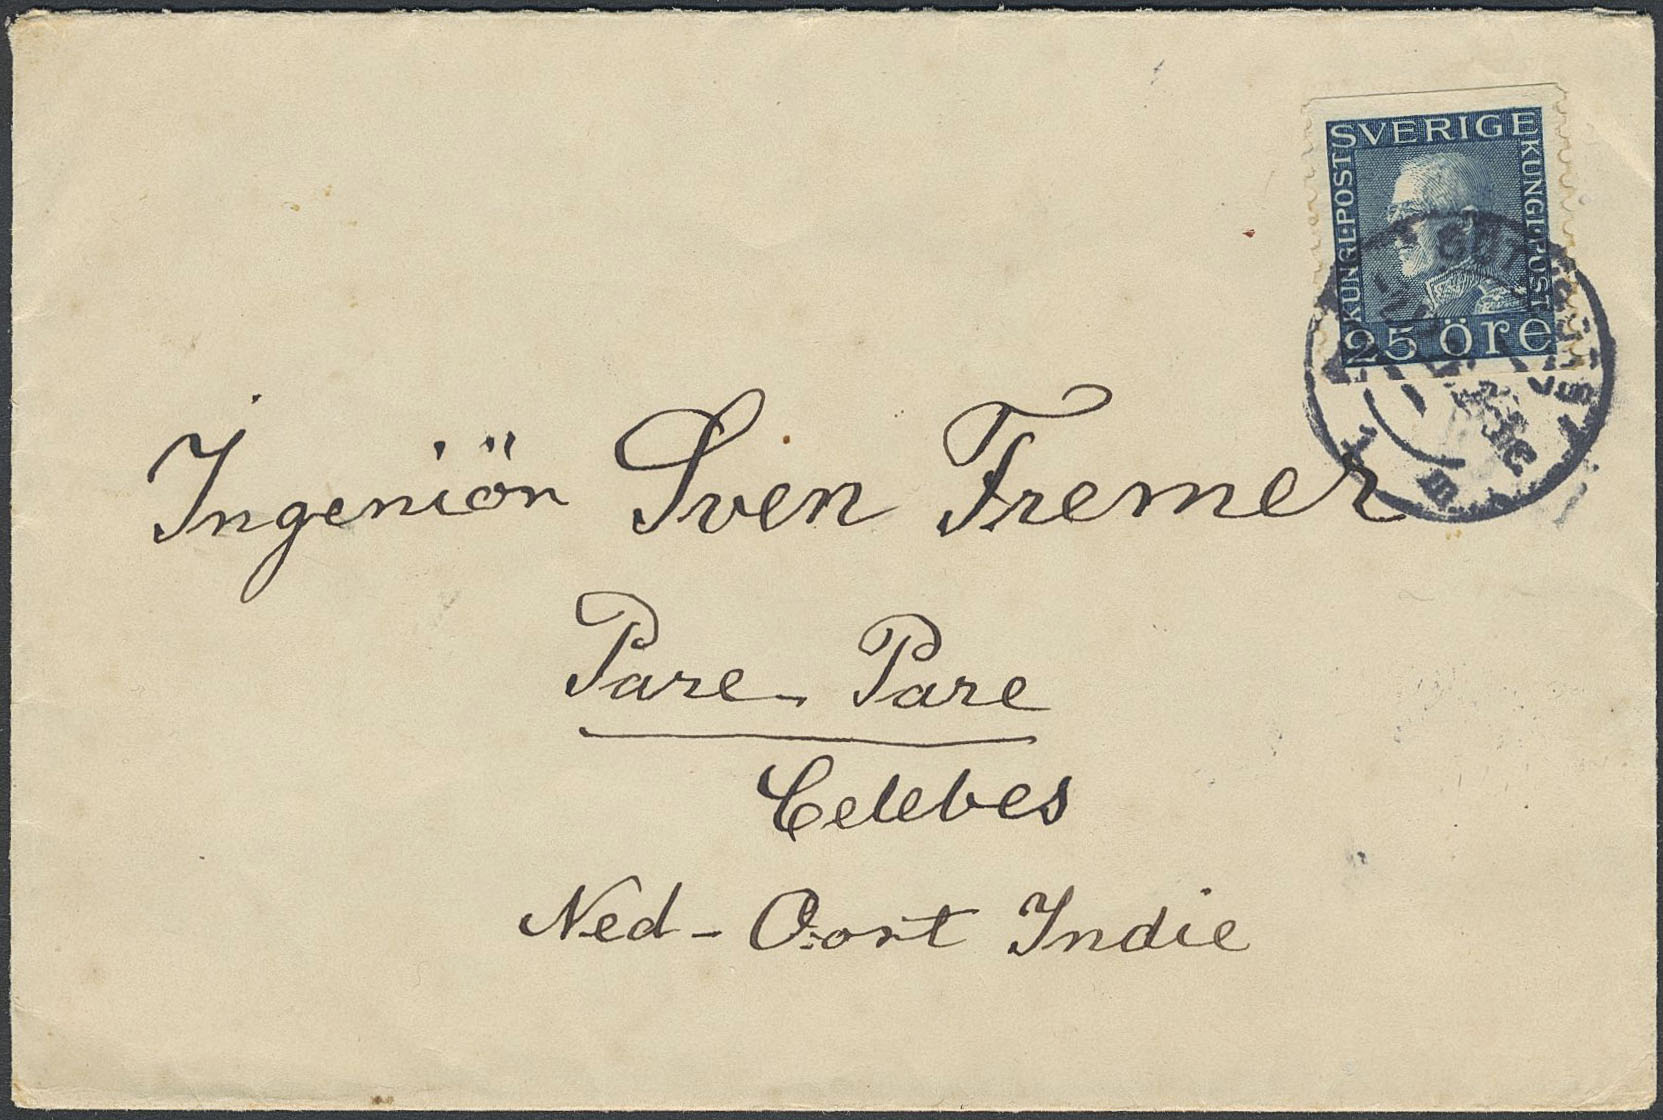 SVERIGE
KUNGL·POST
KUNGL·POST
25 öre
Ingeniör Sven Fremer
Pare-Pare
Celebes
Ned-Oost Indie